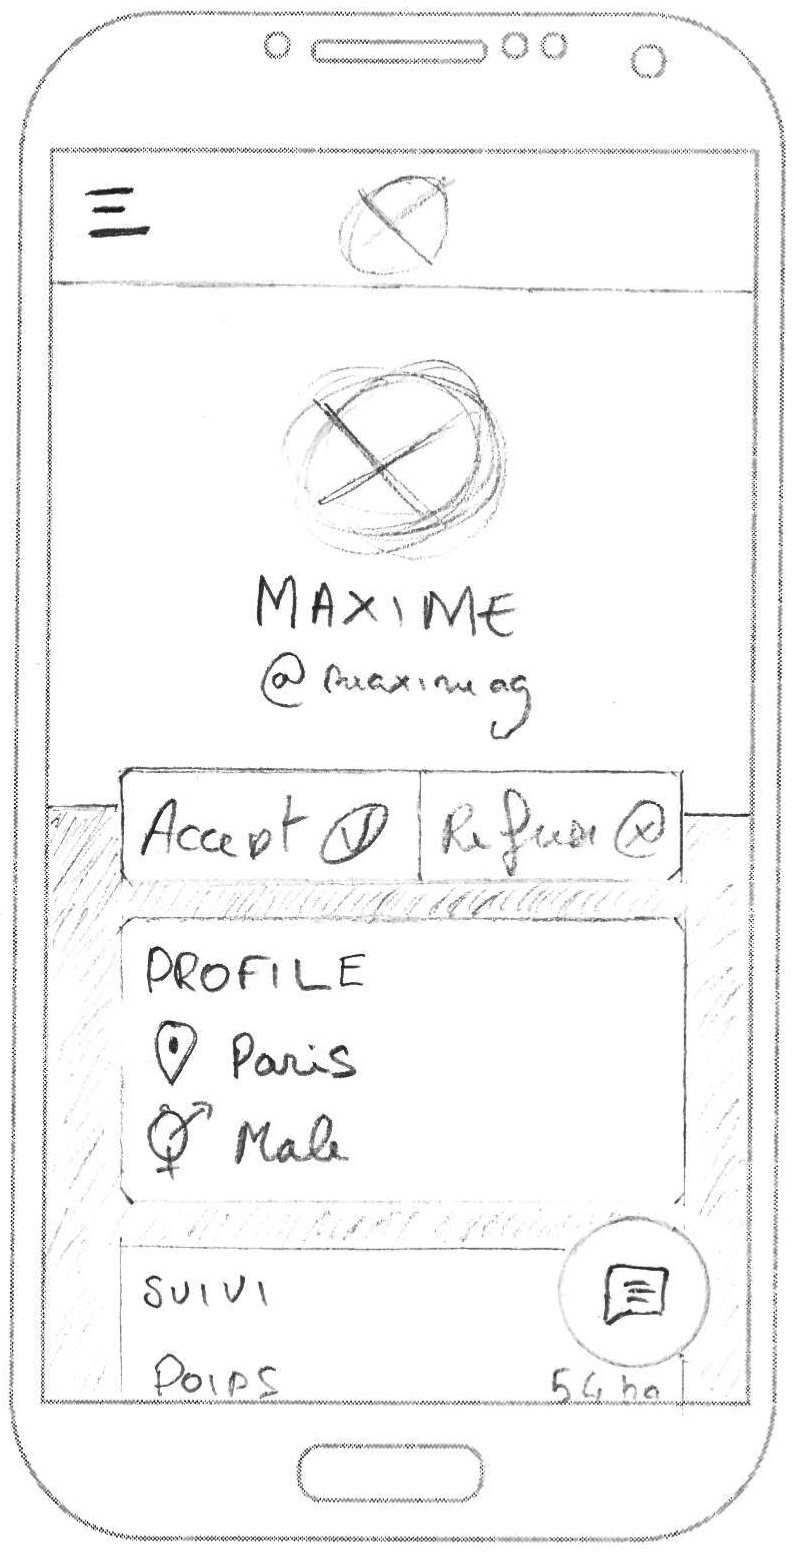 MAXIME
@maximeag
Accept Refuse
PROFILE
Paris
Male
SUIVI
POIDS